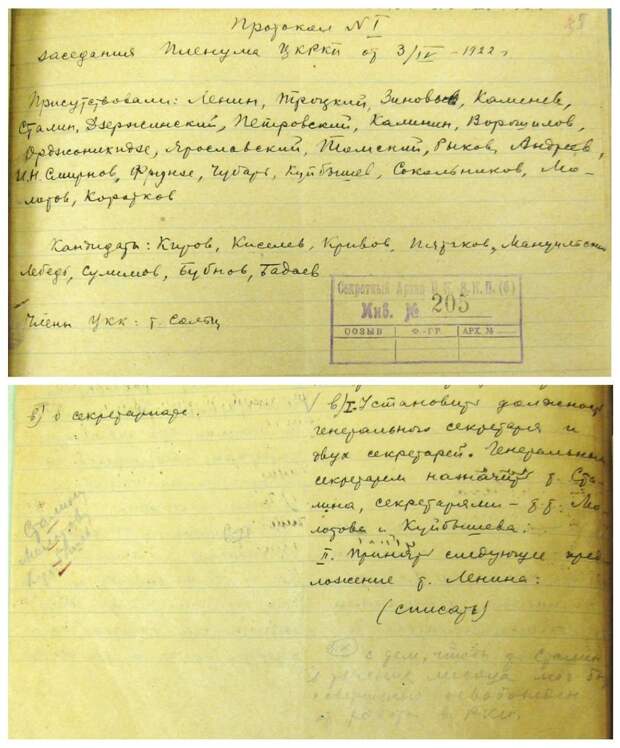 Протокол N I
заседания Пленума ЦКРКП от 3/IV - 1922 г.
Присутствовали: Ленин, Троцкий, Зиновьев, Каменев,
Сталин, Дзержинский, Петровский, Калинин, Ворошилов,
Орджоникидзе, Ярославский, Томский, Рыков, Андреев,
И.Н. Смирнов, Фрунзе, Чубарь, Куйбышев, Сокольников, Мо-
лотов, Коротков
Кандидаты: Киров, Киселев, Кривов, Пятаков, Мануильский
Лебедь, Сулимов, Бубнов, Бадаев
Члены ЦКК: т. Сольц
Секретный Архив Ц. К. В. К. П. (б)
Инв. № 205
ОСОБЫЙ Ф.-ГР. АРХ. №
в) О секретариате.
в) I. Установить должность
генерального секретаря и
двух секретарей. Генеральным
секретарем назначить т. Ста-
лина, секретарями - т.т. Мо-
лотова и Куйбышева.
II. Принять следующее пред-
ложение т. Ленина:
(списать)
Сталин
Молотов
с тем, чтобы т. Сталин
в течение месяца мог быть
совершенно освобожден
от работы в РКИ.